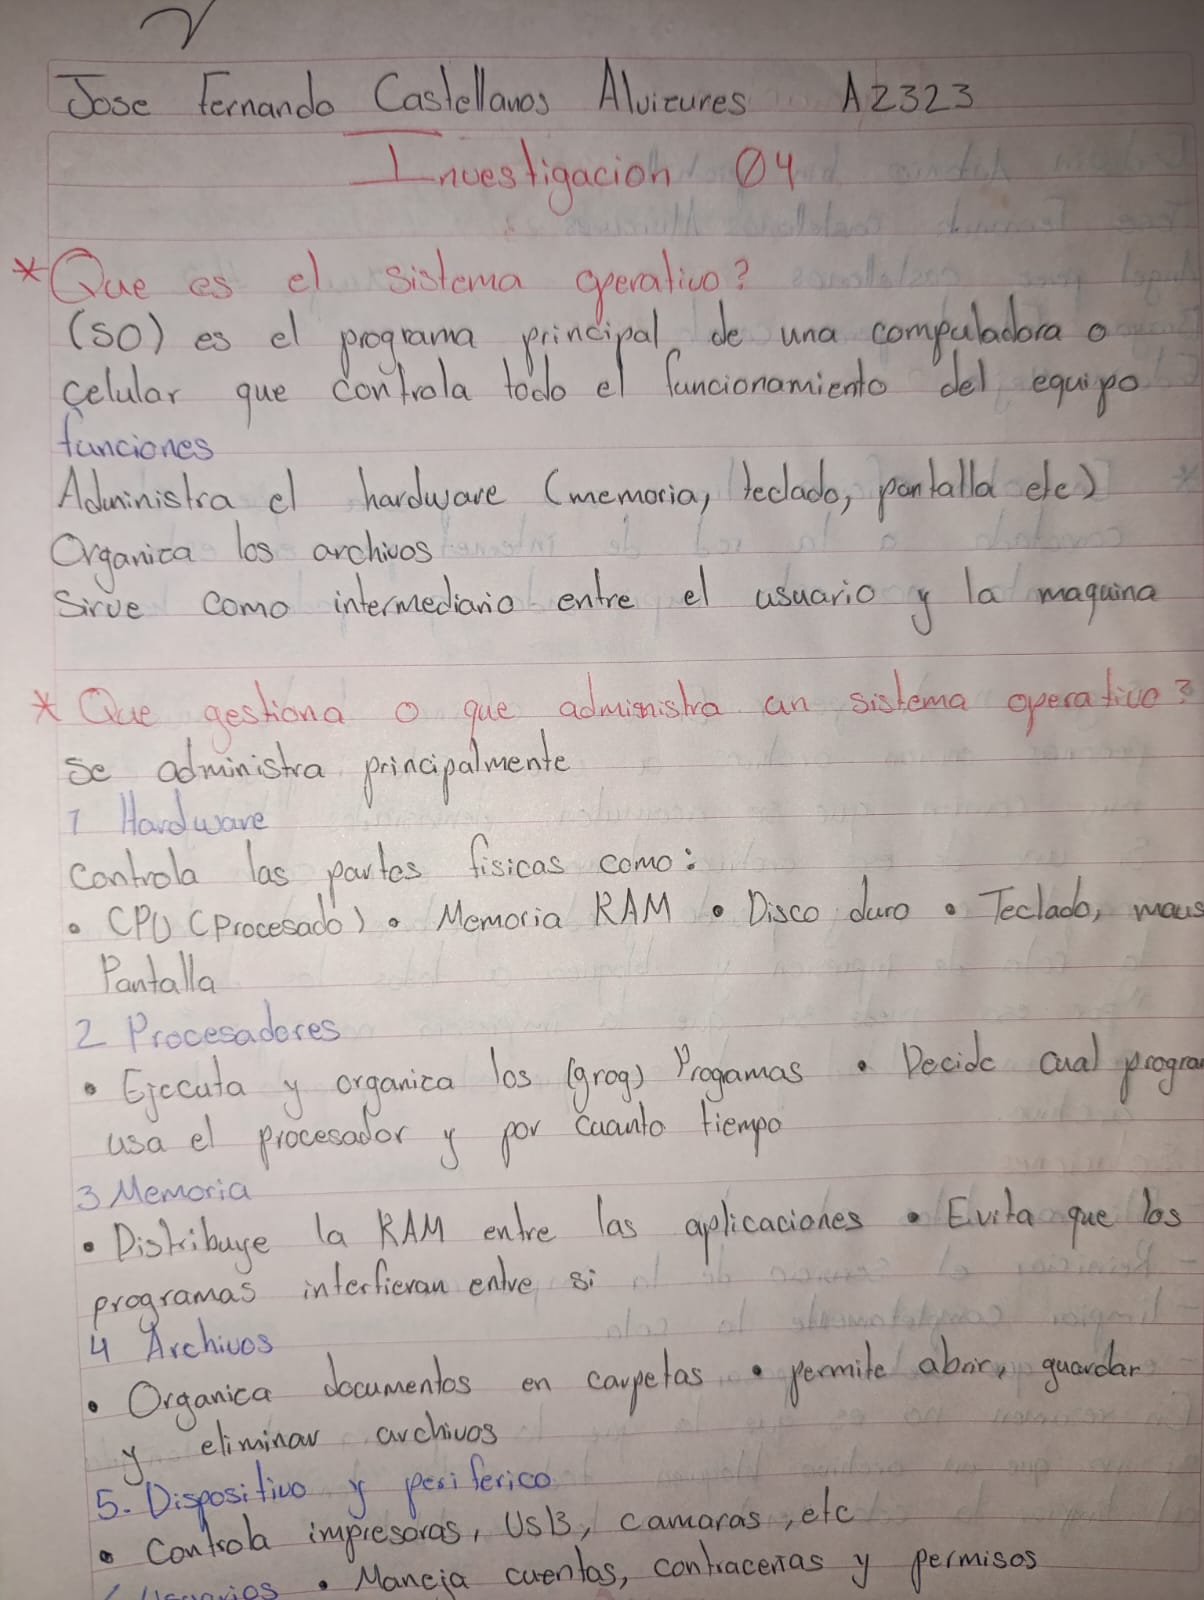 Jose Fernando Castellanos Alvizures A2323
Investigacion 04
* Que es el sistema operativo?
(SO) es el programa principal de una computadora o
celular que controla todo el funcionamiento del equipo
funciones
Administra el hardware (memoria, teclado, pantalla etc)
Organica los archivos
Sirve como intermediario entre el usuario y la maquina
* Que gestiona o que administra un sistema operativo?
Se administra principalmente
1 Hardware
Controla las partes fisicas como:
• CPU (Procesado) • Memoria RAM • Disco duro • Teclado, maus
Pantalla
2 Procesadores
• Ejecuta y organica los (grog) Progamas • Decide cual progra
usa el procesador y por cuanto tiempo
3 Memoria
• Distribuye la RAM entre las aplicaciones • Evita que los
programas interfieran entre si
4 Archivos
• Organica documentos en carpetas • permite abrir, guardar
y eliminar archivos
5. Dispositivo y periferico
• Controla impresoras, USB, camaras, etc
Usuarios • Maneja cuentas, contraceñas y permisos